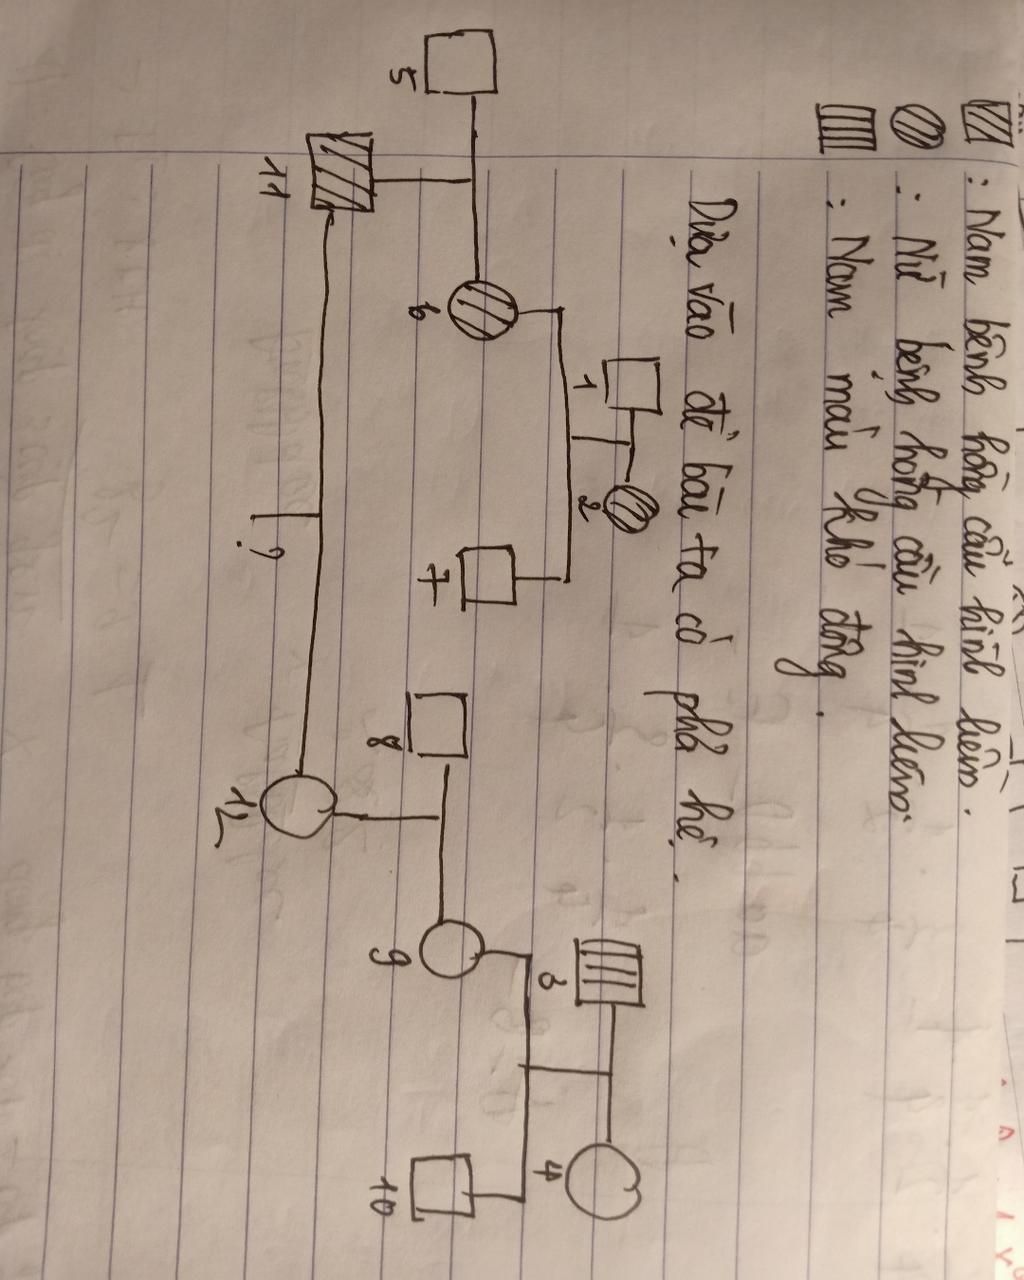 : Nam bệnh hồng cầu hình liềm.
: Nữ bệnh hồng cầu hình liềm.
: Nam máu khó đông.
Dựa vào đề bài ta có phả hệ.
1 2 3 4
5 6 7 8 9 10
11 ? 12